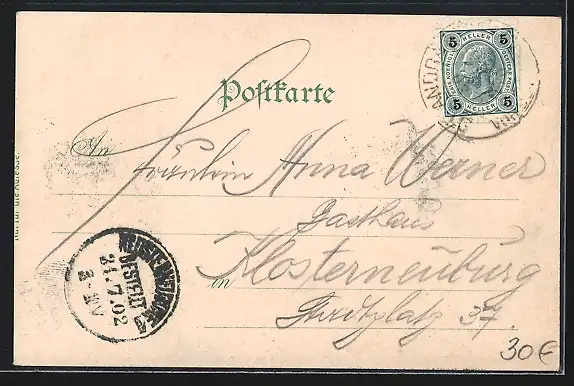 5 5
HELLER
5 5
HELLER
Postkarte
An
Fräulein Anna Werner
Gasthaus
in Klosterneuburg
Stadtplatz 37.
KLOSTERNEUBURG
BESTELLT
21.7.02
30€